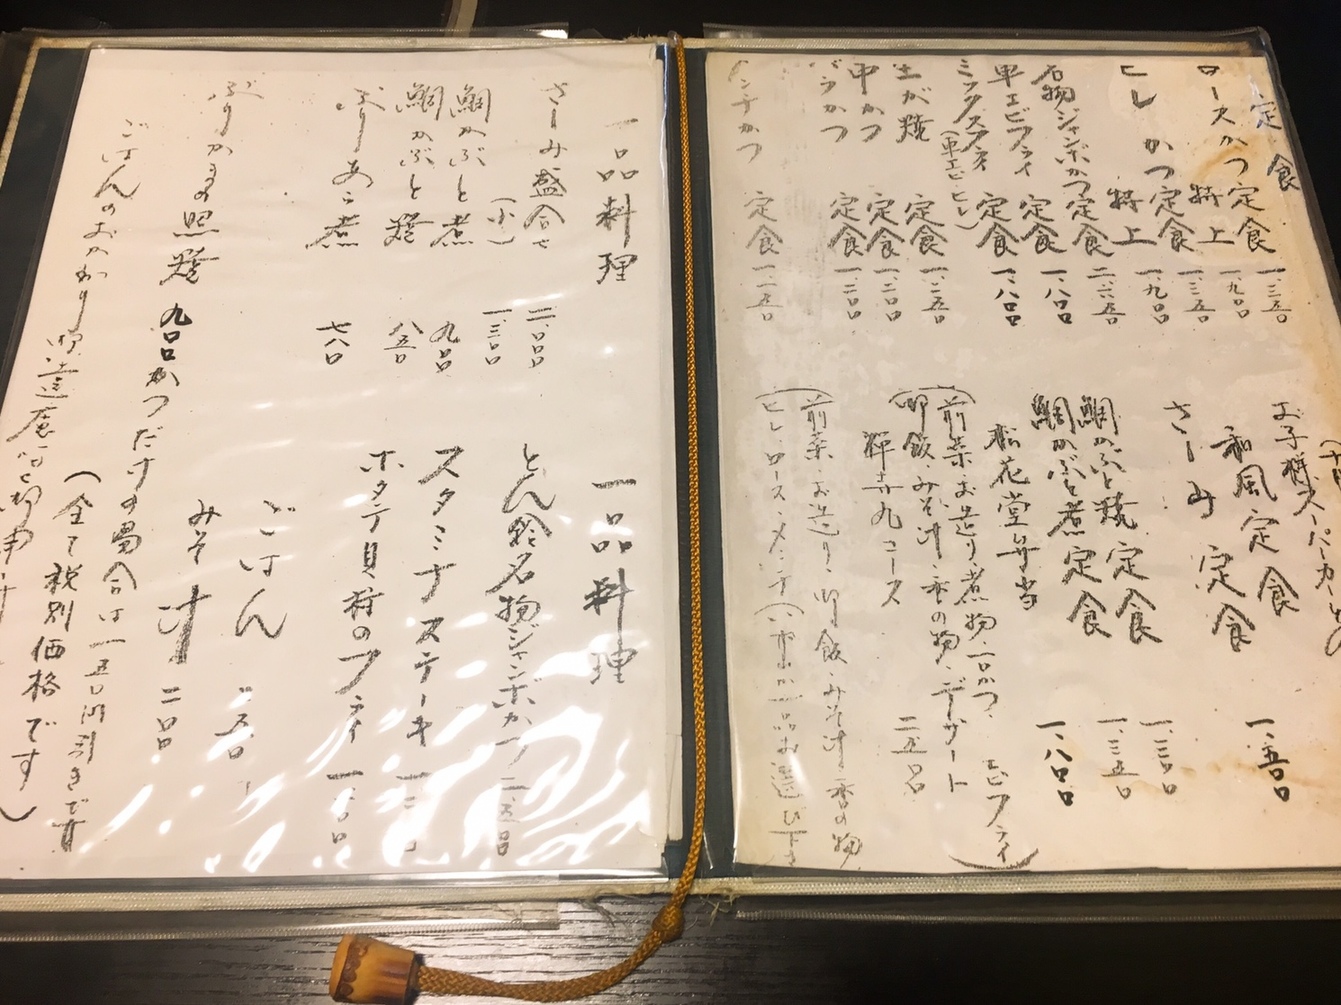 定食
ロースかつ定食 一、三五〇
特上 一、九〇〇
ヒレかつ定食 一、三五〇
特上 一、九〇〇
名物ジャンボかつ定食 二、六五〇
車エビフライ定食 一、八〇〇
ミックスフライ定食 一、八〇〇
(車エビ・ヒレ)
生が焼定食 一、二五〇
串かつ定食 一、二〇〇
定食 一、二〇〇
メンチかつ定食 一、一五〇
お子様
和風定食 一、五〇〇
さしみ定食 一、三〇〇
鯛かぶと焼定食 一、三五〇
鯛かぶと煮定食 一、八〇〇
松花堂弁当
(前菜・お造り・煮物・一口かつ・エビフライ)
御飯・みそ汁・香の物・デザート
コース 二、五〇〇
(前菜・お造り・御飯・みそ汁・香の物
ヒレ・ロース・メンチ
一品料理
さしみ盛合せ 二、〇〇〇
(小) 一、三〇〇
鯛かぶと煮 九〇〇
鯛かぶと焼 八五〇
ぶりあら煮 七八〇
ぶりかまの照焼 九〇〇
一品料理
名物ジャンボかつ 二、五〇〇
スタミナステーキ
ホタテ貝柱のフライ
ごはん 二五〇
みそ汁 二〇〇
かつだけの場合は一五〇円引きです
(全て税別価格です)
ごはんのおかわり御遠慮なく